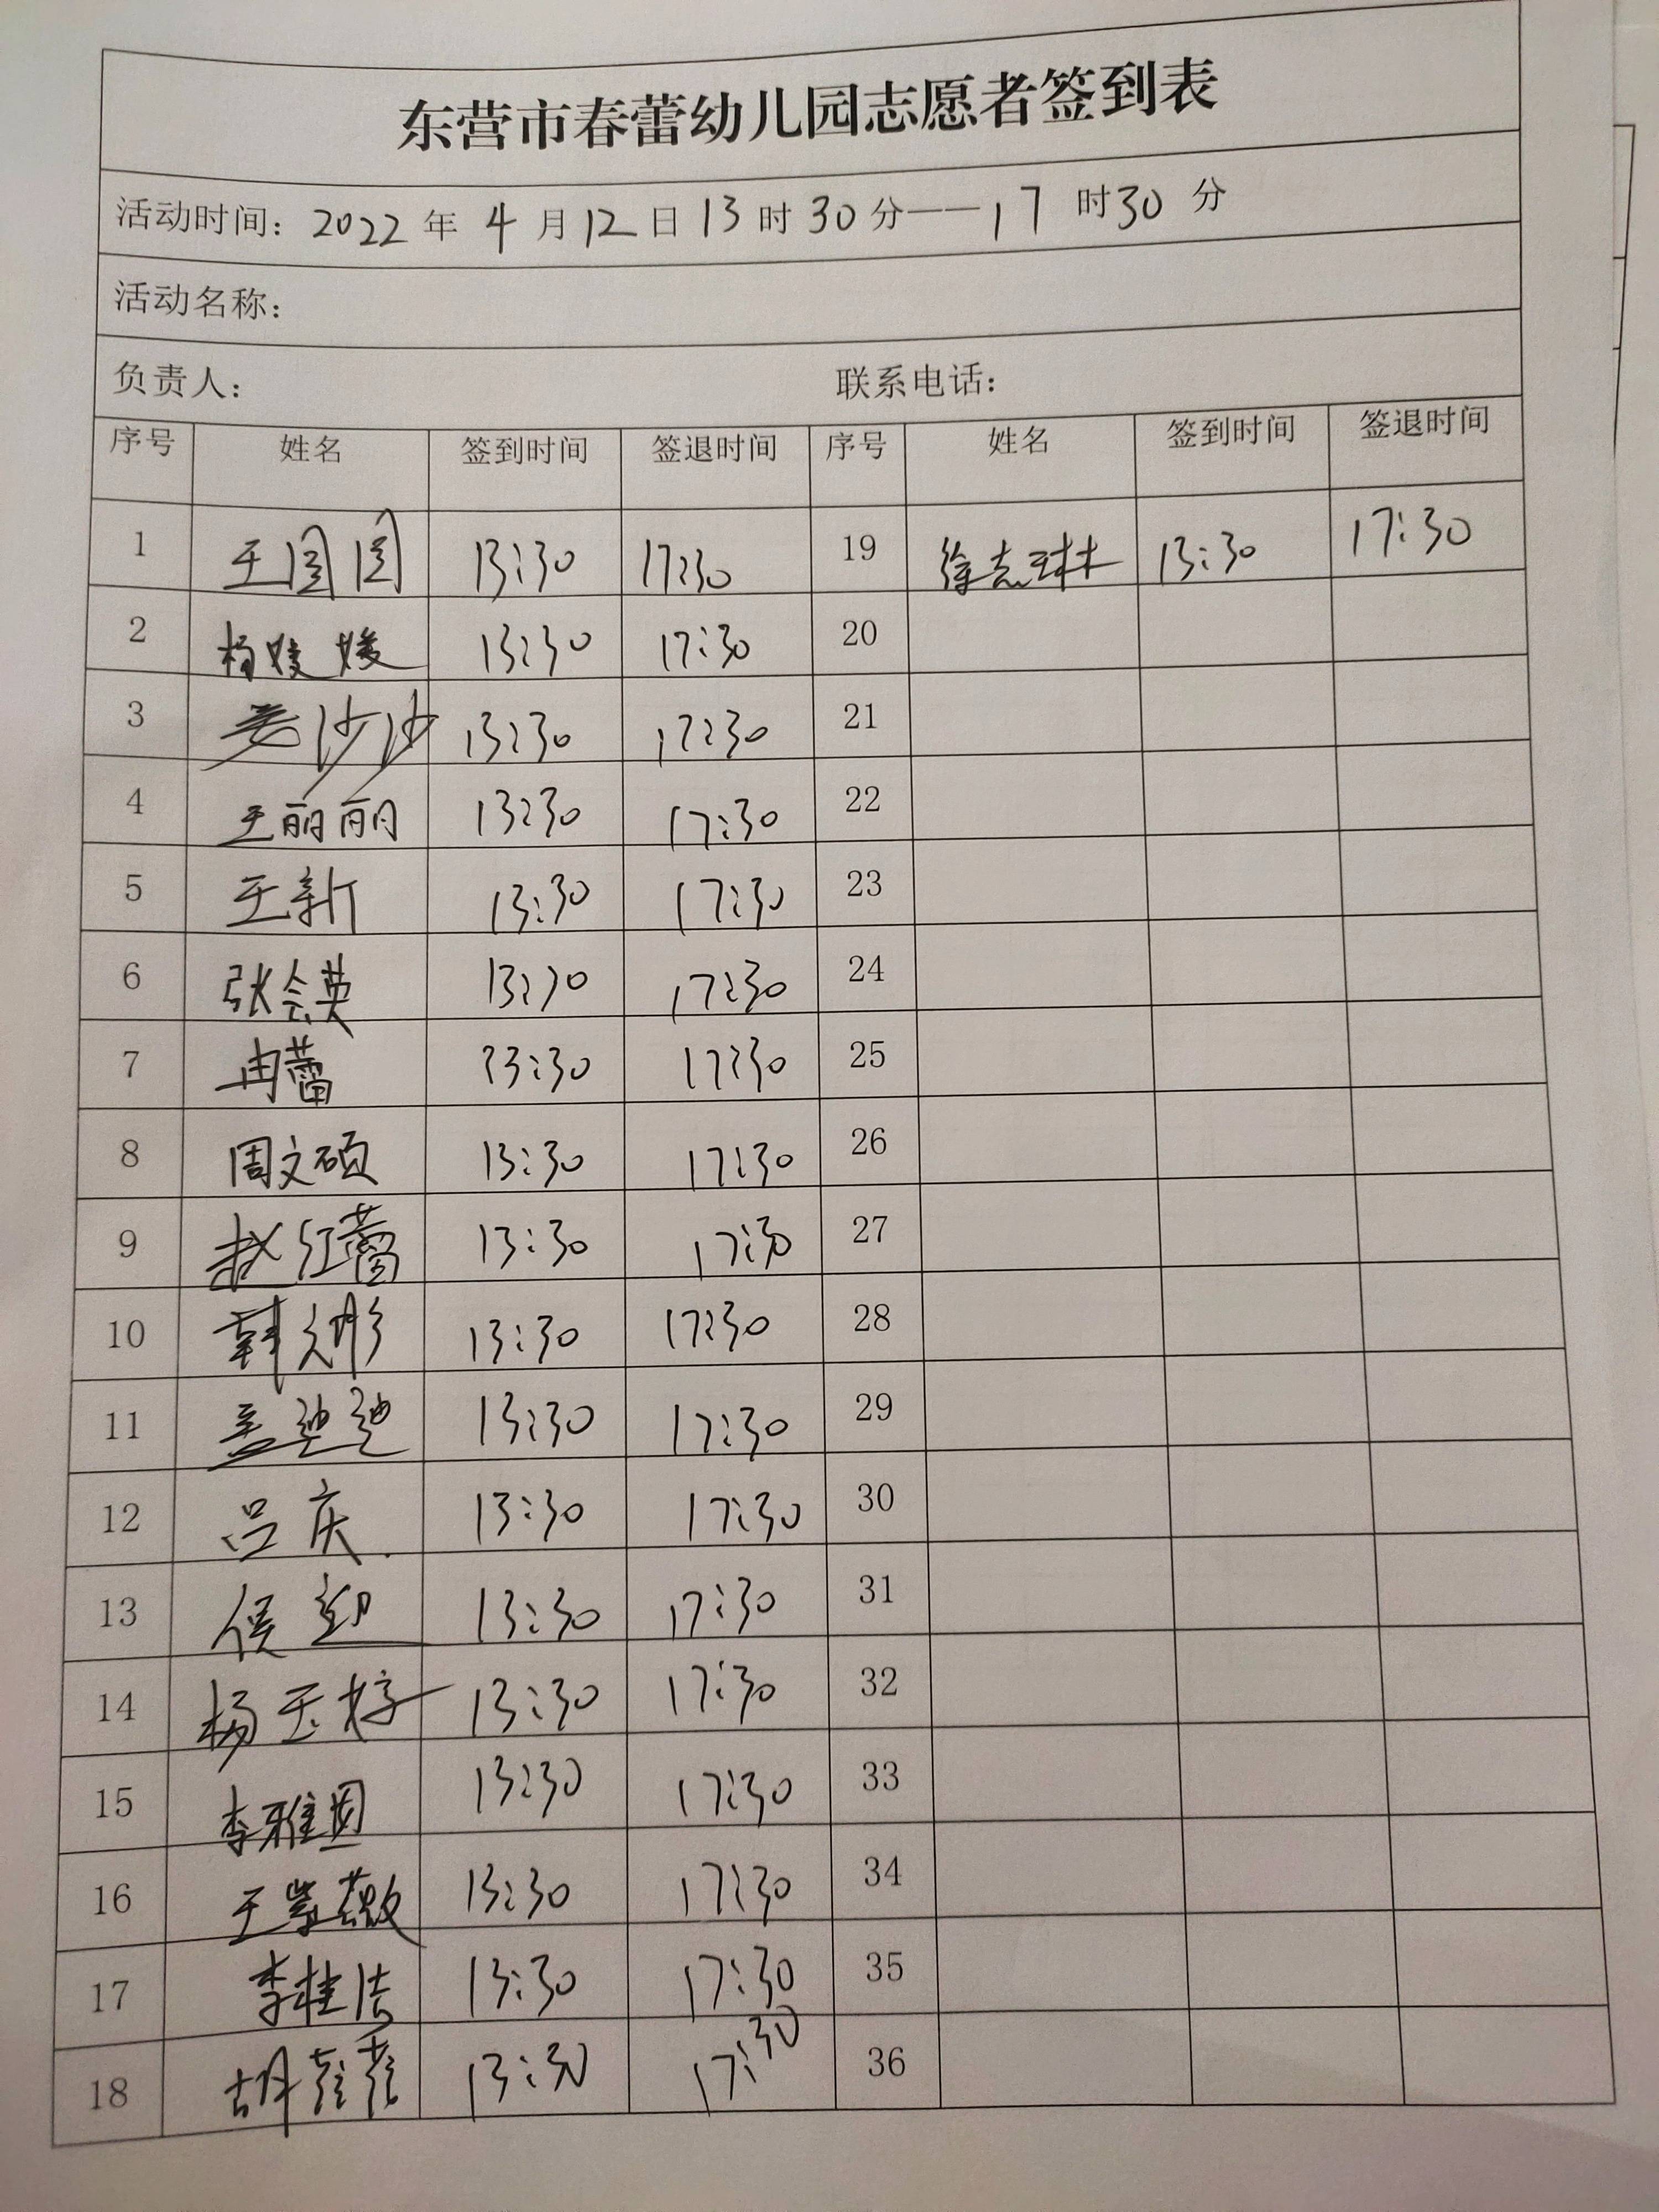 东营市春蕾幼儿园志愿者签到表
活动时间：2022年4月12日13时30分——17时30分
活动名称：
负责人： 联系电话：
序号 姓名 签到时间 签退时间 序号 姓名 签到时间 签退时间
1 王圆圆 13:30 17:30 19 徐志琳 13:30 17:30
2 杨媛媛 13:30 17:30 20
3 娄沙沙 13:30 17:30 21
4 王丽丽 13:30 17:30 22
5 王新 13:30 17:30 23
6 张会英 13:30 17:30 24
7 冉蕾 13:30 17:30 25
8 周文硕 13:30 17:30 26
9 赵红蕾 13:30 17:30 27
10 韩文彤 13:30 17:30 28
11 盖 13:30 17:30 29
12 吕庆 13:30 17:30 30
13 侯 13:30 17:30 31
14 杨玉婷 13:30 17:30 32
15 李雅图 13:30 17:30 33
16 王紫薇 13:30 17:30 34
17 李桂洁 13:30 17:30 35
18 胡 13:30 17:30 36